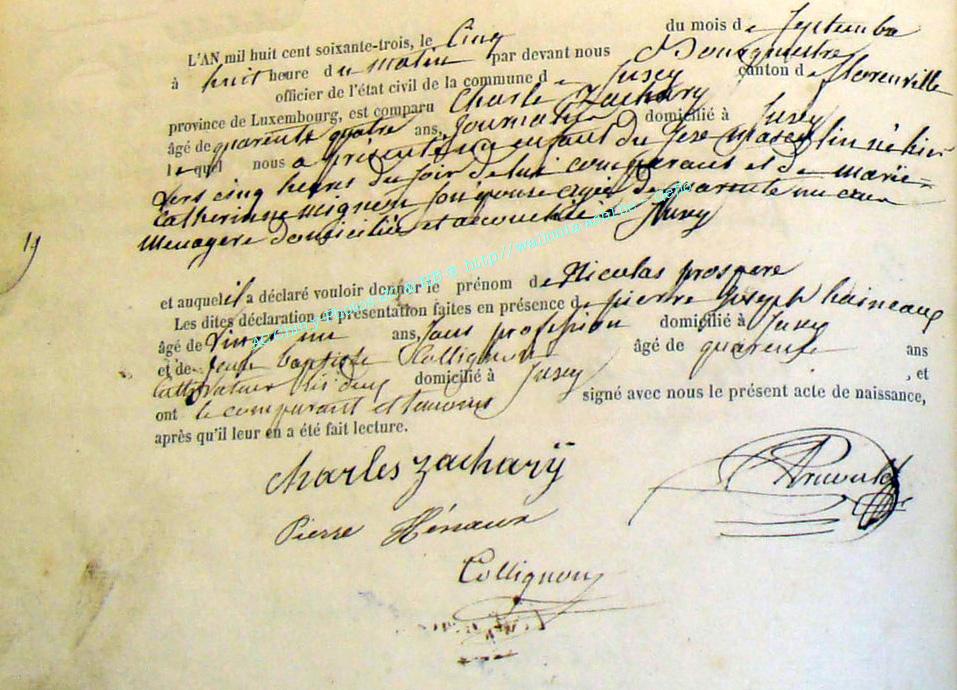 L'AN mil huit cent soixante-trois, le Cinq du mois de Septembre
à huit heure du matin par devant nous Bourgmestre
officier de l'état civil de la commune de Jusey canton de florenville
province de Luxembourg, est comparu Charles Zachary
âgé de quarente quatre ans, Journalier domicilié à Jusey
lequel nous a présenté un enfant du sexe masculin né hier
vers cinq heures du soir de lui comparant et de marie=
Catherinne mignon son épouse agée de quarente un ans
menagère domiciliée et accouchée à Jusey
19
et auquel il a déclaré vouloir donner le prénom de Nicolas prospere
Les dites déclaration et présentation faites en présence de pierre Joseph haineaux
âgé de vingt un ans, sans profession domicilié à Jusey
et de Jean baptiste Collignon âgé de quarente ans
cultivateur domicilié à Jusey , et
ont le comparant et temoins signé avec nous le présent acte de naissance,
après qu'il leur en a été fait lecture.
charles zacharÿ
Pierre Hénaux
Collignon